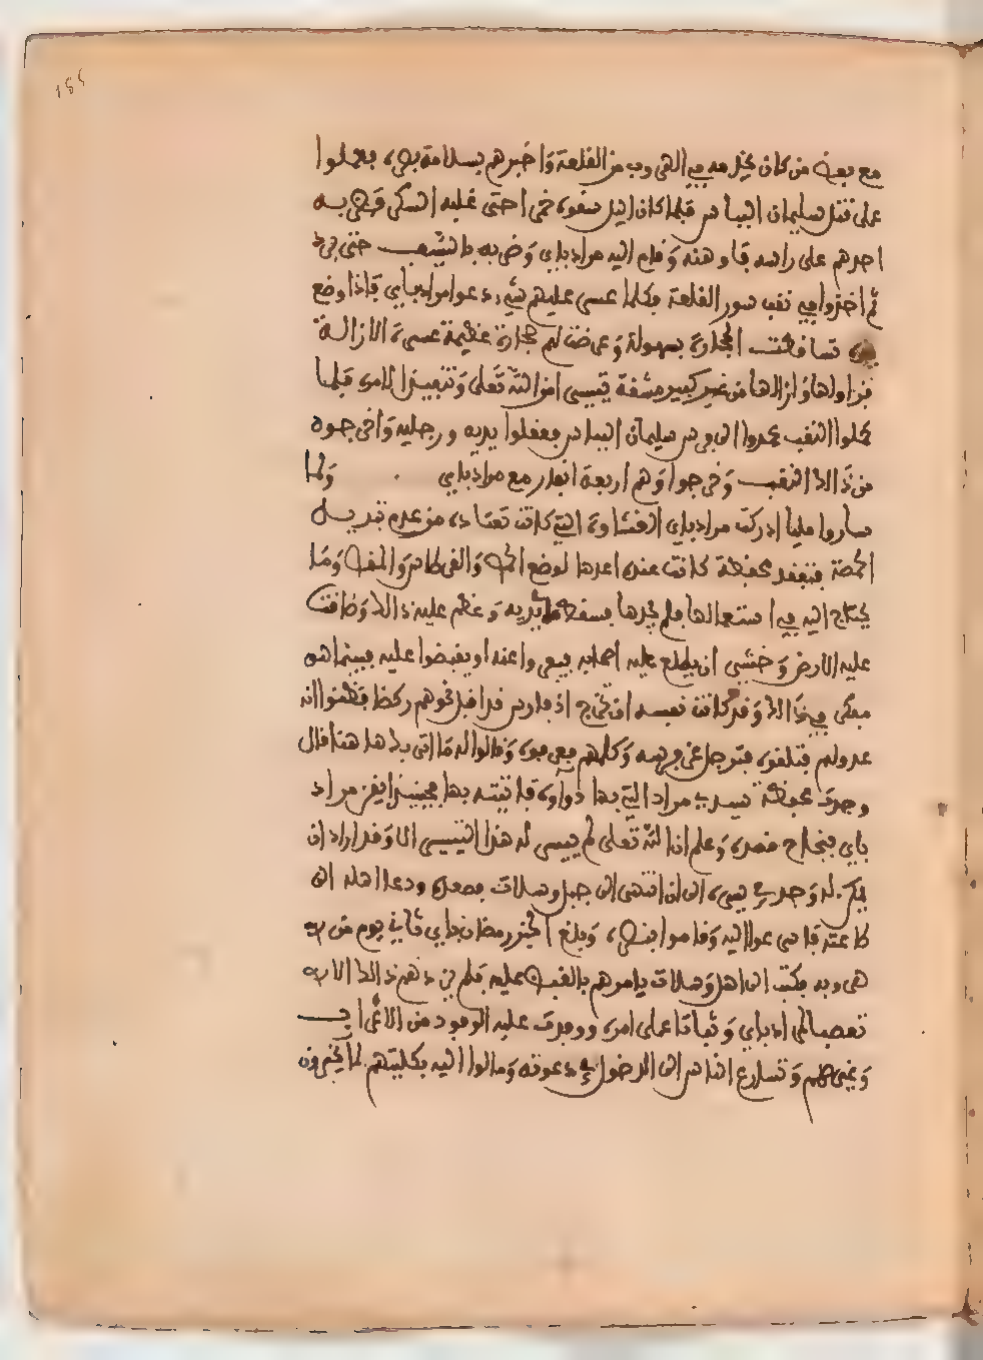 مع بعض من كان يخدمه في الهروب من القلعة وَاخبرهم بسلامة بصره فعملوا
على قتل سليمان البياس فلما كان اليل سقوه خمرا حتى غلبه السكر فضربه
احدهم على راسه فاوهنه وَقام اليه مراد باي وَضربه بالسيف حتى برد
ثم اخذوا في نقب سور القلعة فكلما عسر عليهم شيء دعوا مراد باي فاذا وضع
يده تساقطت الحجارة بسهولة وَعرضت لهم حجارة عظيمة عسرة الازالة
فزاولها وَازالها من غير كبير مشقة تيسير امن الله تعلى وَتنفيذا لامره فلما
كملوا النقب عمدوا الى فرس سليمان البياس فعقلوا يديه ورجليه وَاخرجوه
من ذَالك النقب وَخرجوا وَهم اربعة انفار مع مراد باي وَلما
ساروا مليا ادركت مراد باي الغشاوة التي كانت تعتاده من عدم تدبيره
الحصة فتفقد محفظة كانت عنده اعدها لوضع الحك وَالقرطاس وَالمقص وَما
يحتاج اليه في استعمالها فلم يجدها فسقط ما بيديه وَعظم عليه ذالك وَضاقت
عليه الارض وَخشي ان يطلع عليه اصحابه فيفروا عنه او يقبضوا عليه فبينما هو
مفكر في ذالك وَقد كادت نفسه ان تخرج اذ فارس قد اقبل نحوهم ركضا فظنوا انه
عدو لهم فتلقوه فترجل عن فرسه وَكلهم يعرفوه وَقالوا له ما اتى بك هاهنا فقال
وجدت محفظة سيدي مراد التي بها دواوه فاتيته بها فحينئذ ايقن مراد
باي بنجاح قصده وَعلم ان الله تعلى لم ييسر له هذا التيسير الا وَقد اراد ان
يمكن له وَجد في سيره الى ان انتهى الى جبل وسلات فصعده ودعا اهله الى
طاعته فاسرعوا اليه وَقاموا بنصره وَبلغ الخبر رمضان باي ثاني يوم من
هروبه فكتب الى اهل وَسلات يامرهم بالقبض عليه فلم يزدهم ذالك الامر
تعصبا لمراد باي وَثباتا على امره ووردت عليه الوفود من الاعراب
وَغيرهم وَتسارع الناس الى الدخول في دعوته وَمالوا اليه بكليتهم لما يخبرون